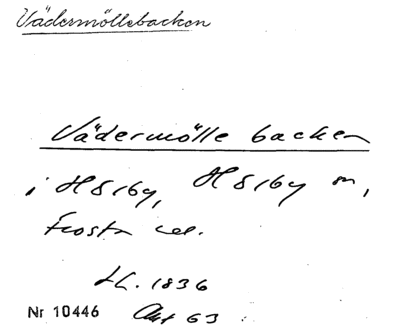 Vädermöllebacken
Vädermölle backen
i Hölby, Hölby sn,
Frosta
1836
Nr 10446 Akt 63